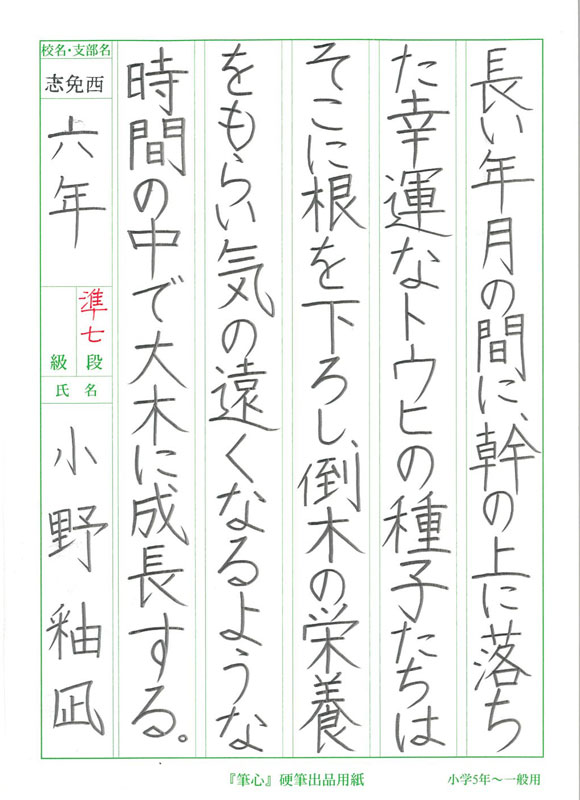 長い年月の間に、幹の上に落ち
た幸運なトウヒの種子たちは
そこに根を下ろし、倒木の栄養
をもらい気の遠くなるような
時間の中で大木に成長する。
校名・支部名
志免西
六年
準七
段
級
氏名
小野釉凪
『筆心』硬筆出品用紙
小学5年～一般用